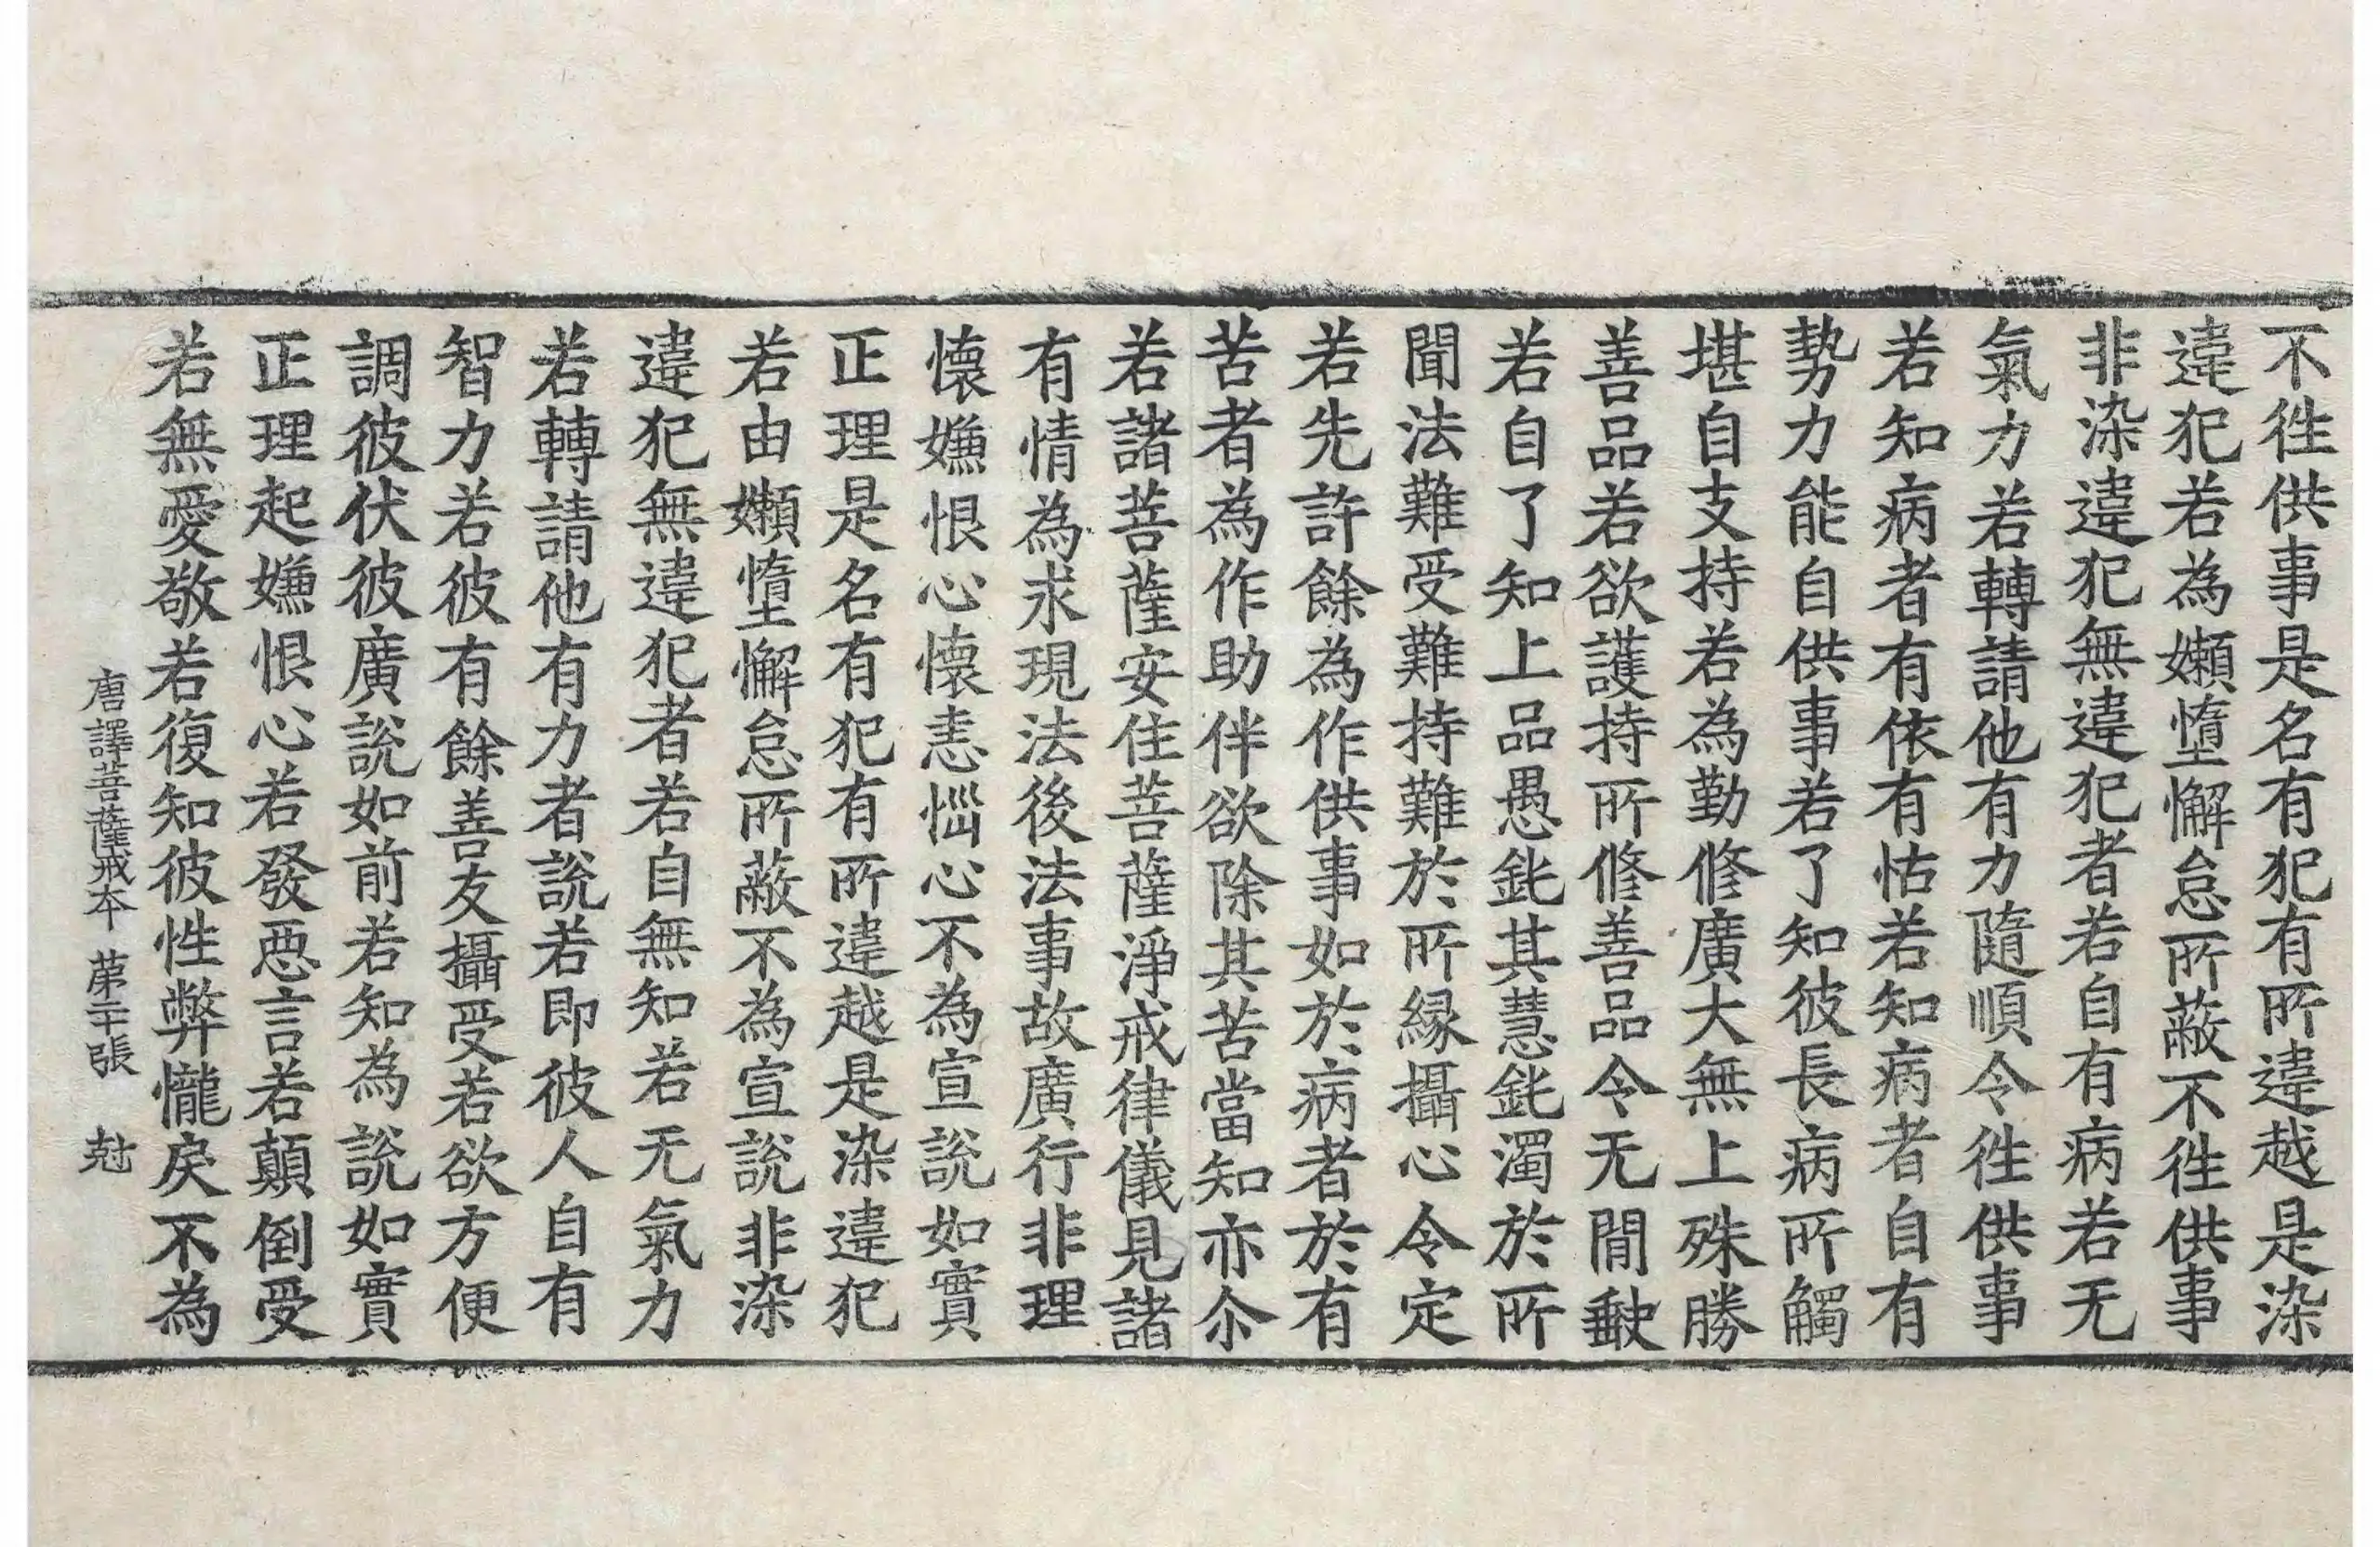 不徃供事是名有犯有所違越是染
違犯若為嬾憜懈怠所蔽不徃供事
非染違犯無違犯者若自有病若无
氣力若轉請他有力隨順令徃供事
若知病者有依有怙若知病者自有
勢力能自供事若了知彼長病所觸
堪自支持若為勤修廣大無上殊勝
善品若欲護持所修善品令无間𡙇
若自了知上品愚鈋其慧鈋濁於所
聞法難受難持難於所縁攝心令定
若先許餘為作供事如於病者於有
苦者為作助伴欲除其苦當知亦尒
若諸菩薩安住菩薩淨戒律儀見諸
有情為求現法後法事故廣行非理
懷嫌恨心懷恚惱心不為宣說如實
正理是名有犯有所違越是染違犯
若由嬾憜懈怠所蔽不為宣說非染
違犯無違犯者若自無知若无氣力
若轉請他有力者說若即彼人自有
智力若彼有餘善友攝受若欲方便
調彼伏彼廣說如前若知為說如實
正理起嫌恨心若發惡言若顛倒受
若無愛敬若復知彼性弊㦕戾不為
唐譯菩薩戒本 苐二十張 尅